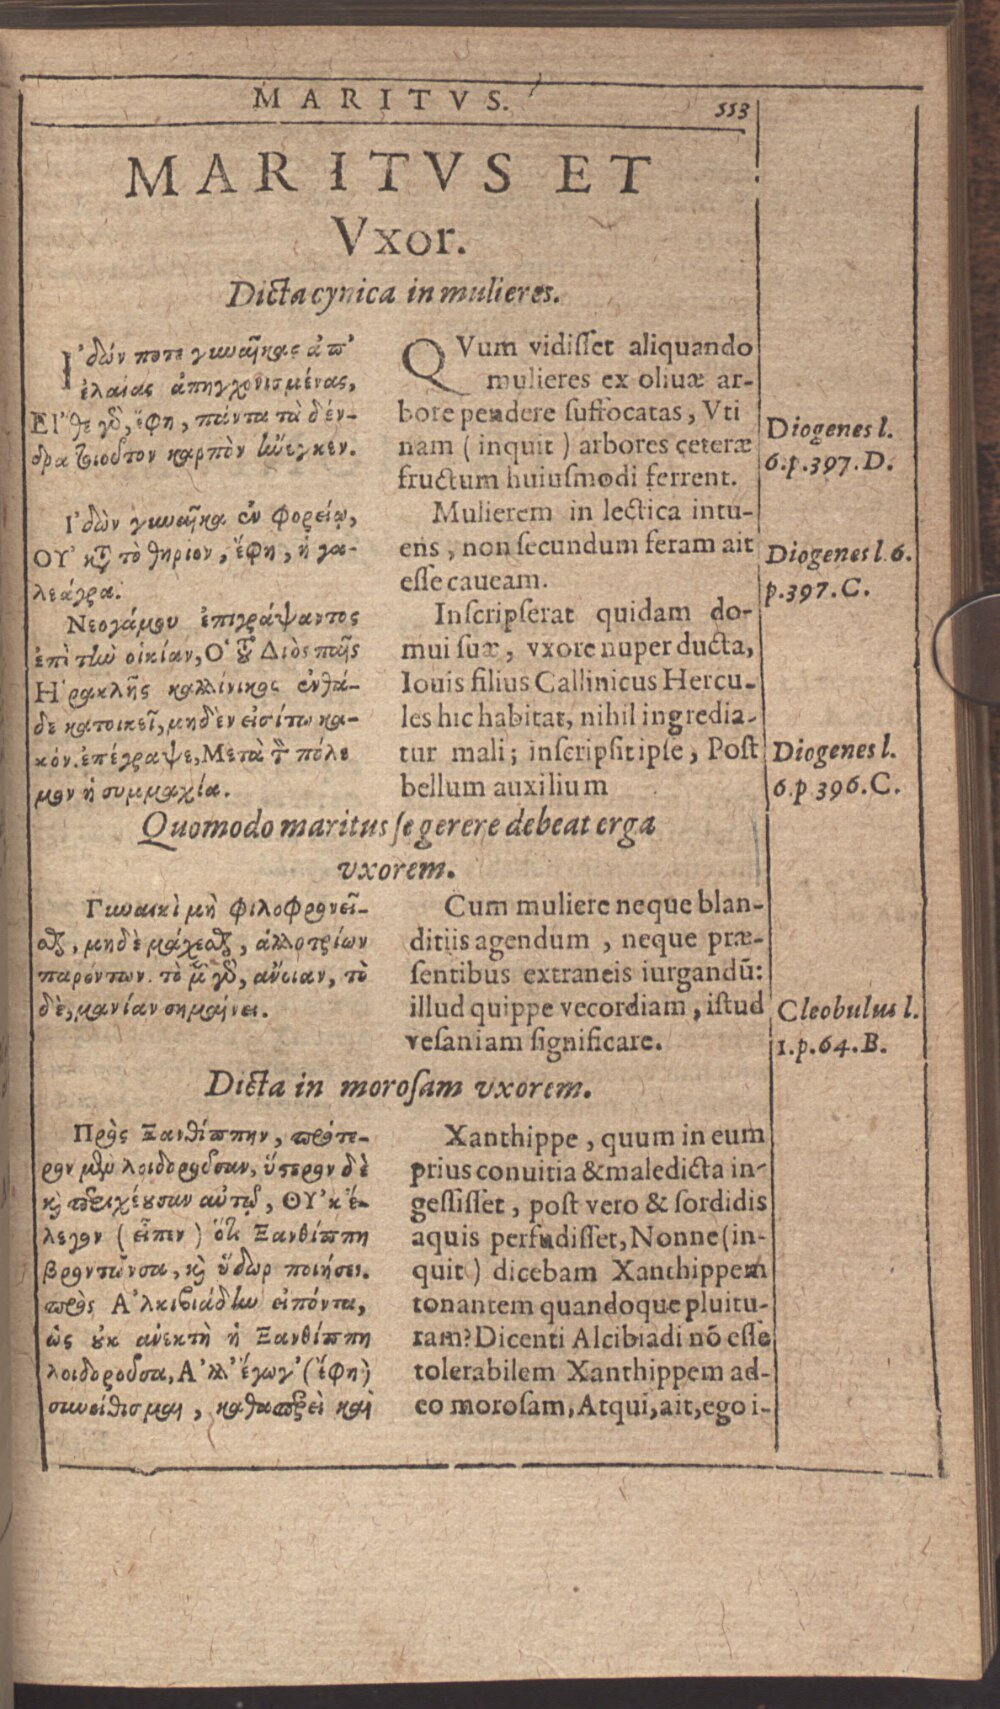 MARITVS.
553
MARITVS ET
Vxor.
Dicta cynica in mulieres.
Ἰδών ποτε γυναῖκας ἀπ'
ἐλαίας ἀπηγχονισμένας,
Εἴθε γὸ, ἔφη, πάντα τὰ δέν-
δρα τοιοῦτον καρπὸν ἤνεγκεν.
Ἰδὼν γυναῖκα ἐν φορείῳ,
ΟΥ' κτ τὸ θηρίον, ἔφη, ἡ γα-
λεάγρα.
Νεογάμου ἐπιγράψαντος
ἐπὶ τὴν οἰκίαν, Ὁ τοῦ Διὸς παῖς
Ἡρακλῆς καλλίνικος ἐνθά-
δε κατοικεῖ, μηδὲν εἰσίτω κα-
κόν. ἐπέγραψε, Μετὰ τὸν πόλε
μον ἡ συμμαχία.
QVum vidiſſet aliquando
mulieres ex oliuæ ar-
bore pendere ſuffocatas, Vti
nam (inquit) arbores ceteræ
fructum huiuſmodi ferrent.
Mulierem in lectica intu-
ens, non ſecundum feram ait
eſſe caueam.
Inſcripſerat quidam do-
mui ſuæ, vxore nuper ducta,
Iouis filius Callinicus Hercu-
les hic habitat, nihil ingredia-
tur mali; inſcripſit ipſe, Poſt
bellum auxilium
Diogenes l.
6.p.397.D.
Diogenes l. 6.
p.397.C.
Diogenes l.
6.p.396.C.
Quomodo maritus ſe gerere debeat erga
vxorem.
Γυναικὶ μὴ φιλοφρονεῖ-
σθαι, μηδὲ μάχεσθαι, ἀλλοτρίων
παρόντων. τὸ μὲν γὸ, ἄνοιαν, τὸ
δὲ, μανίαν σημαίνει.
Cum muliere neque blan-
ditiis agendum, neque præ-
ſentibus extraneis iurgandū:
illud quippe vecordiam, iſtud
veſaniam ſignificare.
Cleobulus l.
1.p.64.B.
Dicta in moroſam vxorem.
Πρὸς Ξανθίππην, πρότε-
ρον μὲν λοιδοροῦσαν, ὕστερον δὲ
καὶ περιχέουσαν αὐτῷ, ΟΥ'κ ἔ-
λεγον (εἶπεν) ὅτι Ξανθίππη
βροντῶσα, καὶ ὕδωρ ποιήσει.
πρὸς Ἀλκιβιάδην εἰπόντα,
ὡς οὐκ ἀνεκτὴ ἡ Ξανθίππη
λοιδοροῦσα, Ἀλλ' ἔγωγ' (ἔφη)
συνείθισμαι, καθαπερεὶ καὶ
Xanthippe, quum in eum
prius conuitia & maledicta in-
geſſiſſet, poſt vero & ſordidis
aquis perfudiſſet, Nonne (in-
quit) dicebam Xanthippem
tonantem quandoque pluitu-
ram? Dicenti Alcibiadi nō eſſe
tolerabilem Xanthippem ad-
eo moroſam, Atqui, ait, ego i-